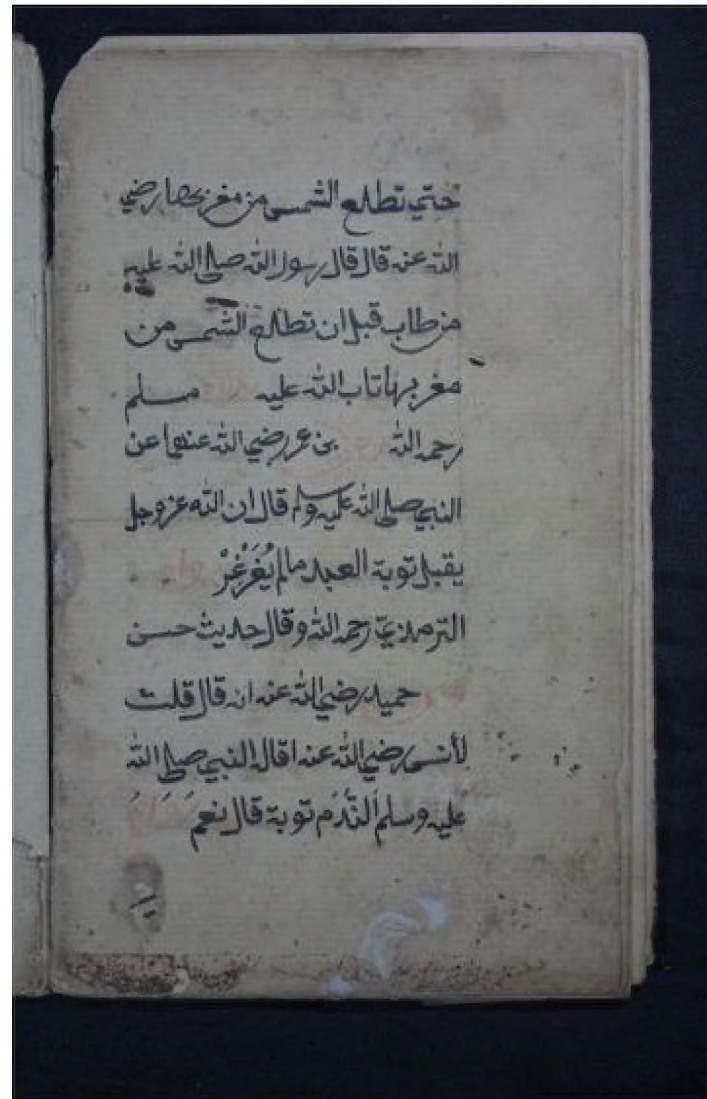 حتي تطلع الشمس من مغربها رضي
الله عنه قال قال رسول الله صلي الله عليه
من طاب قبل ان تطلع الشمس من
مغربها تاب الله عليه مسلم
رحمه الله بن عمر رضي الله عنهما عن
النبي صلي الله عليه وسلم قال ان الله عز وجل
يقبل توبة العبد مالم يُغَرْغِرْ
الترمذيّ رحمه الله وقال حديث حسن
حميد رضي الله عنه انه قال قلت
لأنس رضي الله عنه اقال النبي صلي الله
عليه وسلم النَّدَم توبة قال نعم